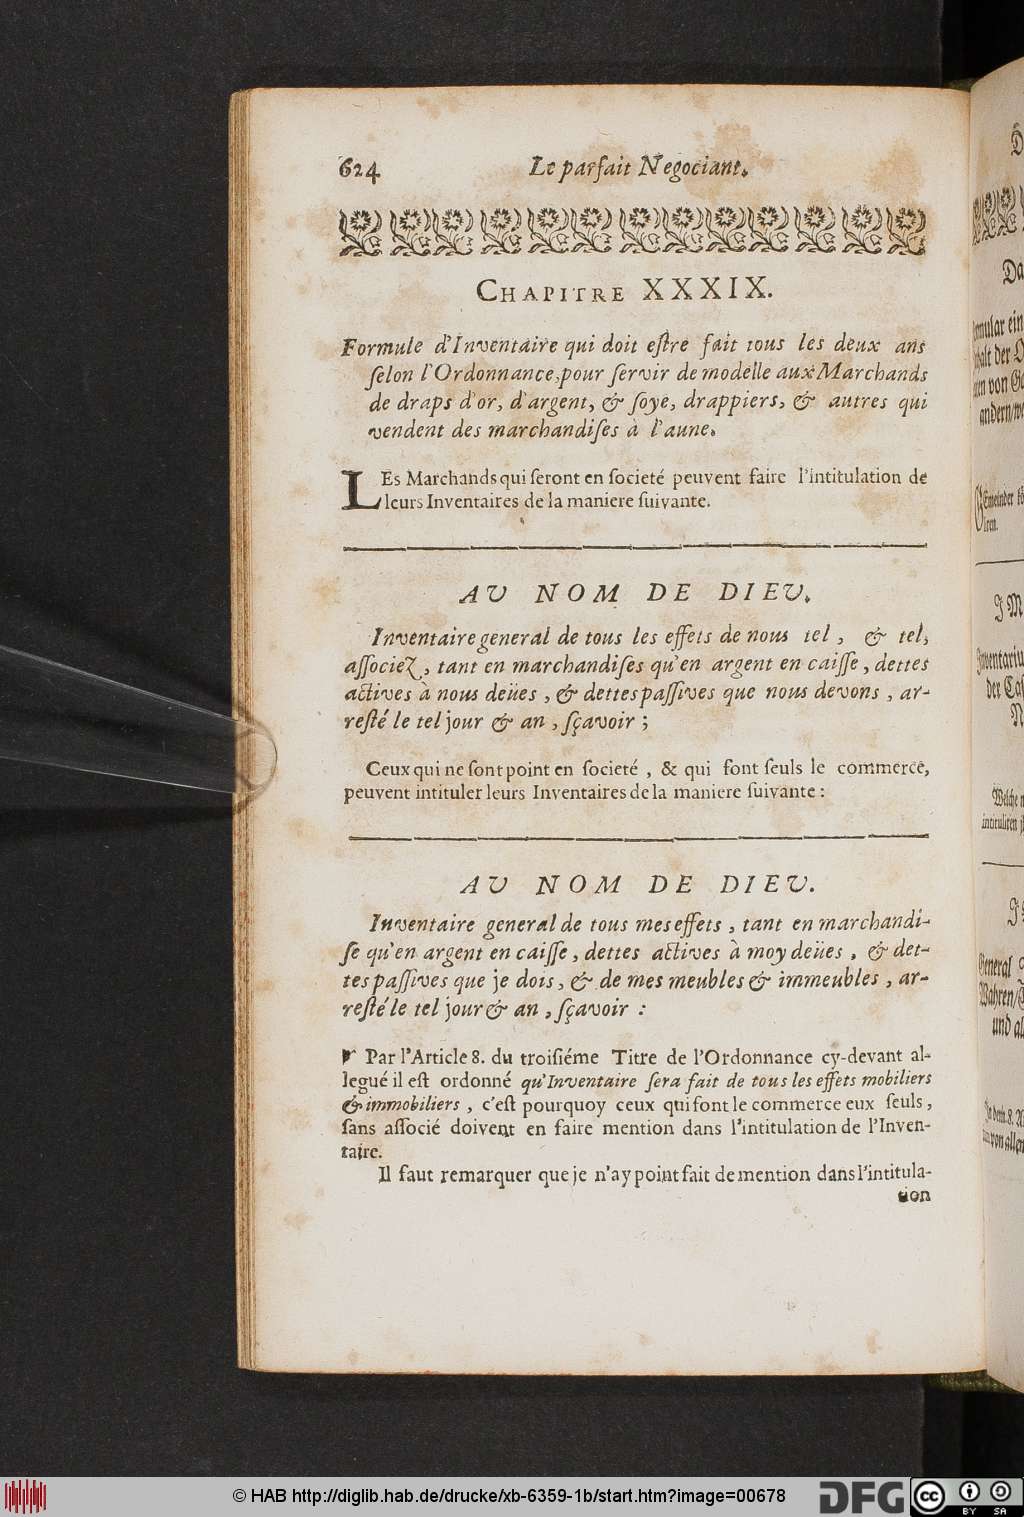 624
Le parfait Negociant.
CHAPITRE XXXIX.
Formule d'Inventaire qui doit eſtre fait tous les deux ans
ſelon l'Ordonnance, pour ſervir de modelle aux Marchands
de draps d'or, d'argent, & ſoye, drappiers, & autres qui
vendent des marchandiſes à l'aune.
LEs Marchands qui ſeront en ſocieté peuvent faire l'intitulation de
leurs Inventaires de la maniere ſuivante.
AU NOM DE DIEU.
Inventaire general de tous les effets de nous tel, & tel,
aſſociez, tant en marchandiſes qu'en argent en caiſſe, dettes
actives à nous deües, & dettes paſſives que nous devons, ar-
reſté le tel jour & an, ſçavoir;
Ceux qui ne ſont point en ſocieté, & qui font ſeuls le commerce,
peuvent intituler leurs Inventaires de la maniere ſuivante:
AU NOM DE DIEU.
Inventaire general de tous mes effets, tant en marchandi-
ſe qu'en argent en caiſſe, dettes actives à moy deües, & det-
tes paſſives que je dois, & de mes meubles & immeubles, ar-
reſté le tel jour & an, ſçavoir:
☛ Par l'Article 8. du troiſiéme Titre de l'Ordonnance cy-devant al-
legué il eſt ordonné qu'Inventaire ſera fait de tous les effets mobiliers
& immobiliers, c'eſt pourquoy ceux qui font le commerce eux ſeuls,
ſans aſſocié doivent en faire mention dans l'intitulation de l'Inven-
taire.
Il faut remarquer que je n'ay point fait de mention dans l'intitula-
tion
© HAB http://diglib.hab.de/drucke/xb-6359-1b/start.htm?image=00678
DFG
cc
BY SA